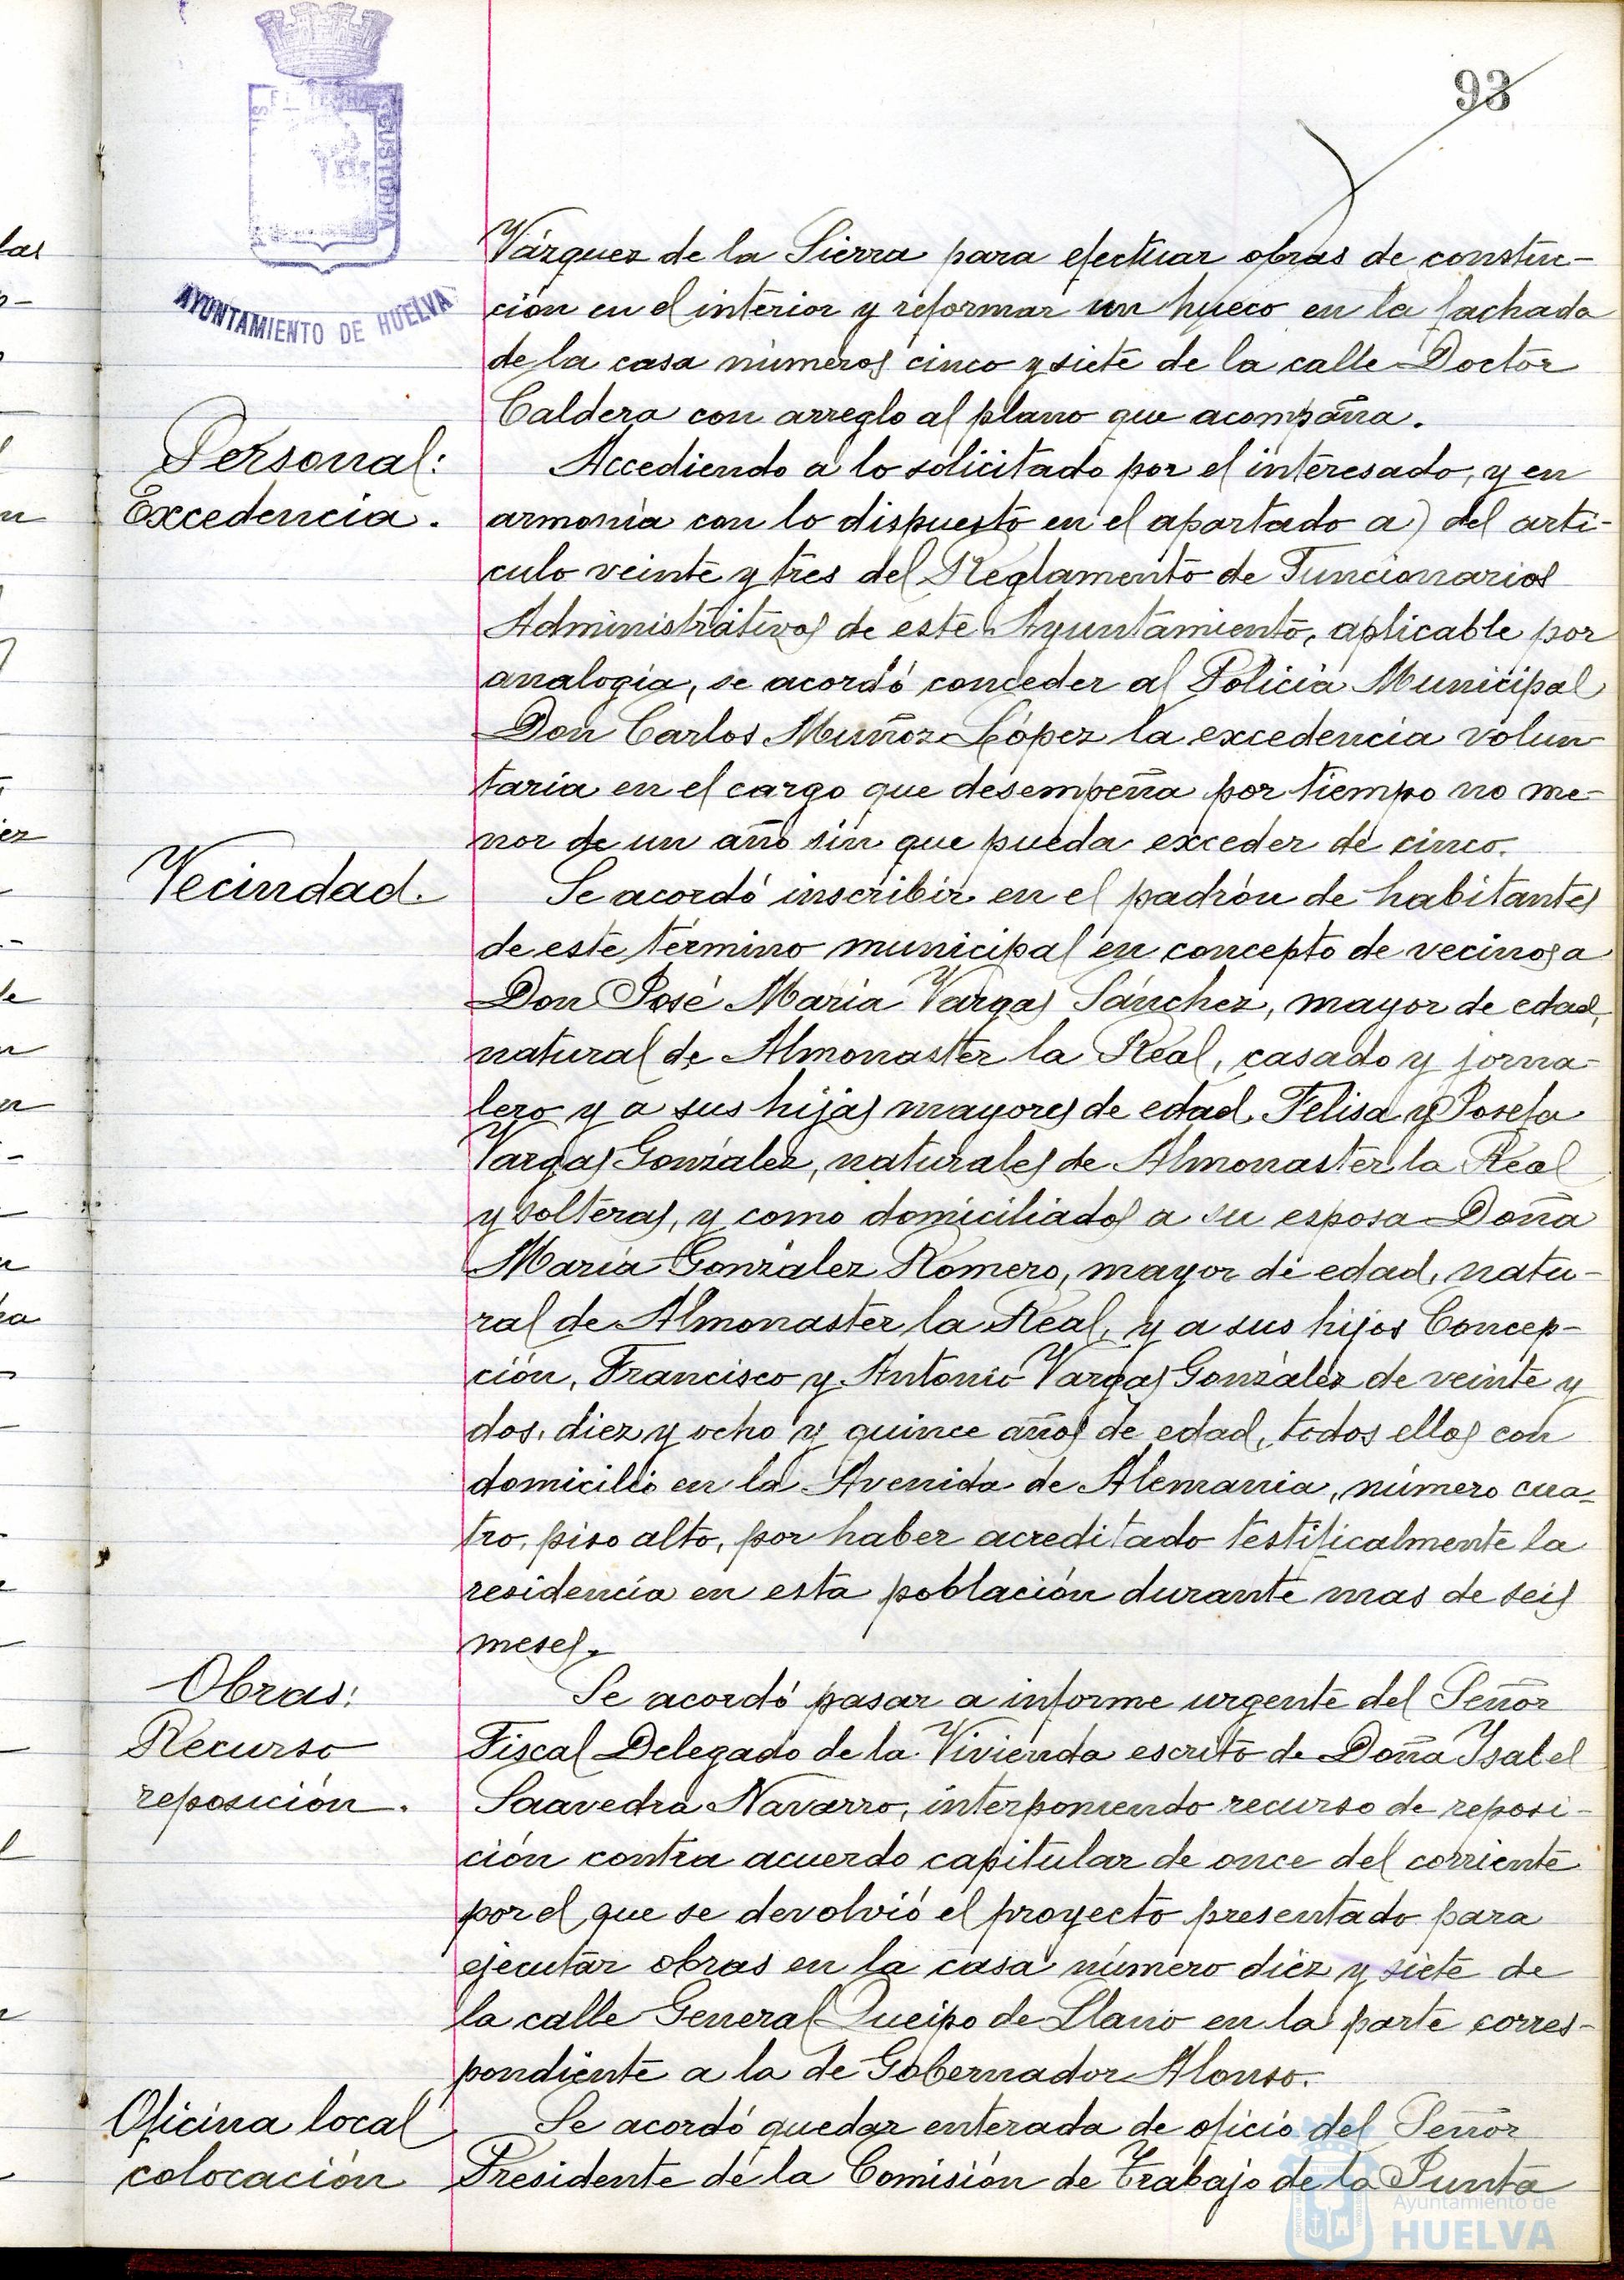 93
AYUNTAMIENTO DE HUELVA
Vázquez de la Sierra para efectuar obras de construc-
ción en el interior y reformar un hueco en la fachada
de la casa números cinco y siete de la calle Doctor
Caldera con arreglo al plano que acompaña.
Personal:
Excedencia.
Accediendo a lo solicitado por el interesado, y en
armonía con lo dispuesto en el apartado a) del artí-
culo veinte y tres del Reglamento de Funcionarios
Administrativos de este Ayuntamiento, aplicable por
analogía, se acordó conceder al Policía Municipal
Don Carlos Muñoz López la excedencia volun-
taria en el cargo que desempeña por tiempo no me-
nor de un año sin que pueda exceder de cinco.
Vecindad.
Se acordó inscribir en el padrón de habitantes
de este término municipal en concepto de vecinos a
Don José María Vargas Sánchez, mayor de edad,
natural de Almonaster la Real, casado y jorna-
lero y a sus hijas mayores de edad, Felisa y Josefa
Vargas González, naturales de Almonaster la Real
y solteras, y como domiciliados a su esposa Doña
María González Romero, mayor de edad, natu-
ral de Almonaster la Real, y a sus hijos Concep-
ción, Francisco y Antonio Vargas González de veinte y
dos, diez y ocho y quince años de edad, todos ellos con
domicilio en la Avenida de Alemania, número cua-
tro, piso alto, por haber acreditado testificalmente la
residencia en esta población durante mas de seis
meses.
Obras:
Recurso
reposición.
Se acordó pasar a informe urgente del Señor
Fiscal Delegado de la Vivienda escrito de Doña Ysabel
Saavedra Navarro, interponiendo recurso de reposi-
ción contra acuerdo capitular de once del corriente
por el que se devolvió el proyecto presentado para
ejecutar obras en la casa número diez y siete de
la calle General Queipo de Llano en la parte corres-
pondiente a la de Gobernador Alonso.
Oficina local
colocación
Se acordó quedar enterada de oficio del Señor
Presidente de la Comisión de Trabajo de la Junta
Ayuntamiento de
HUELVA